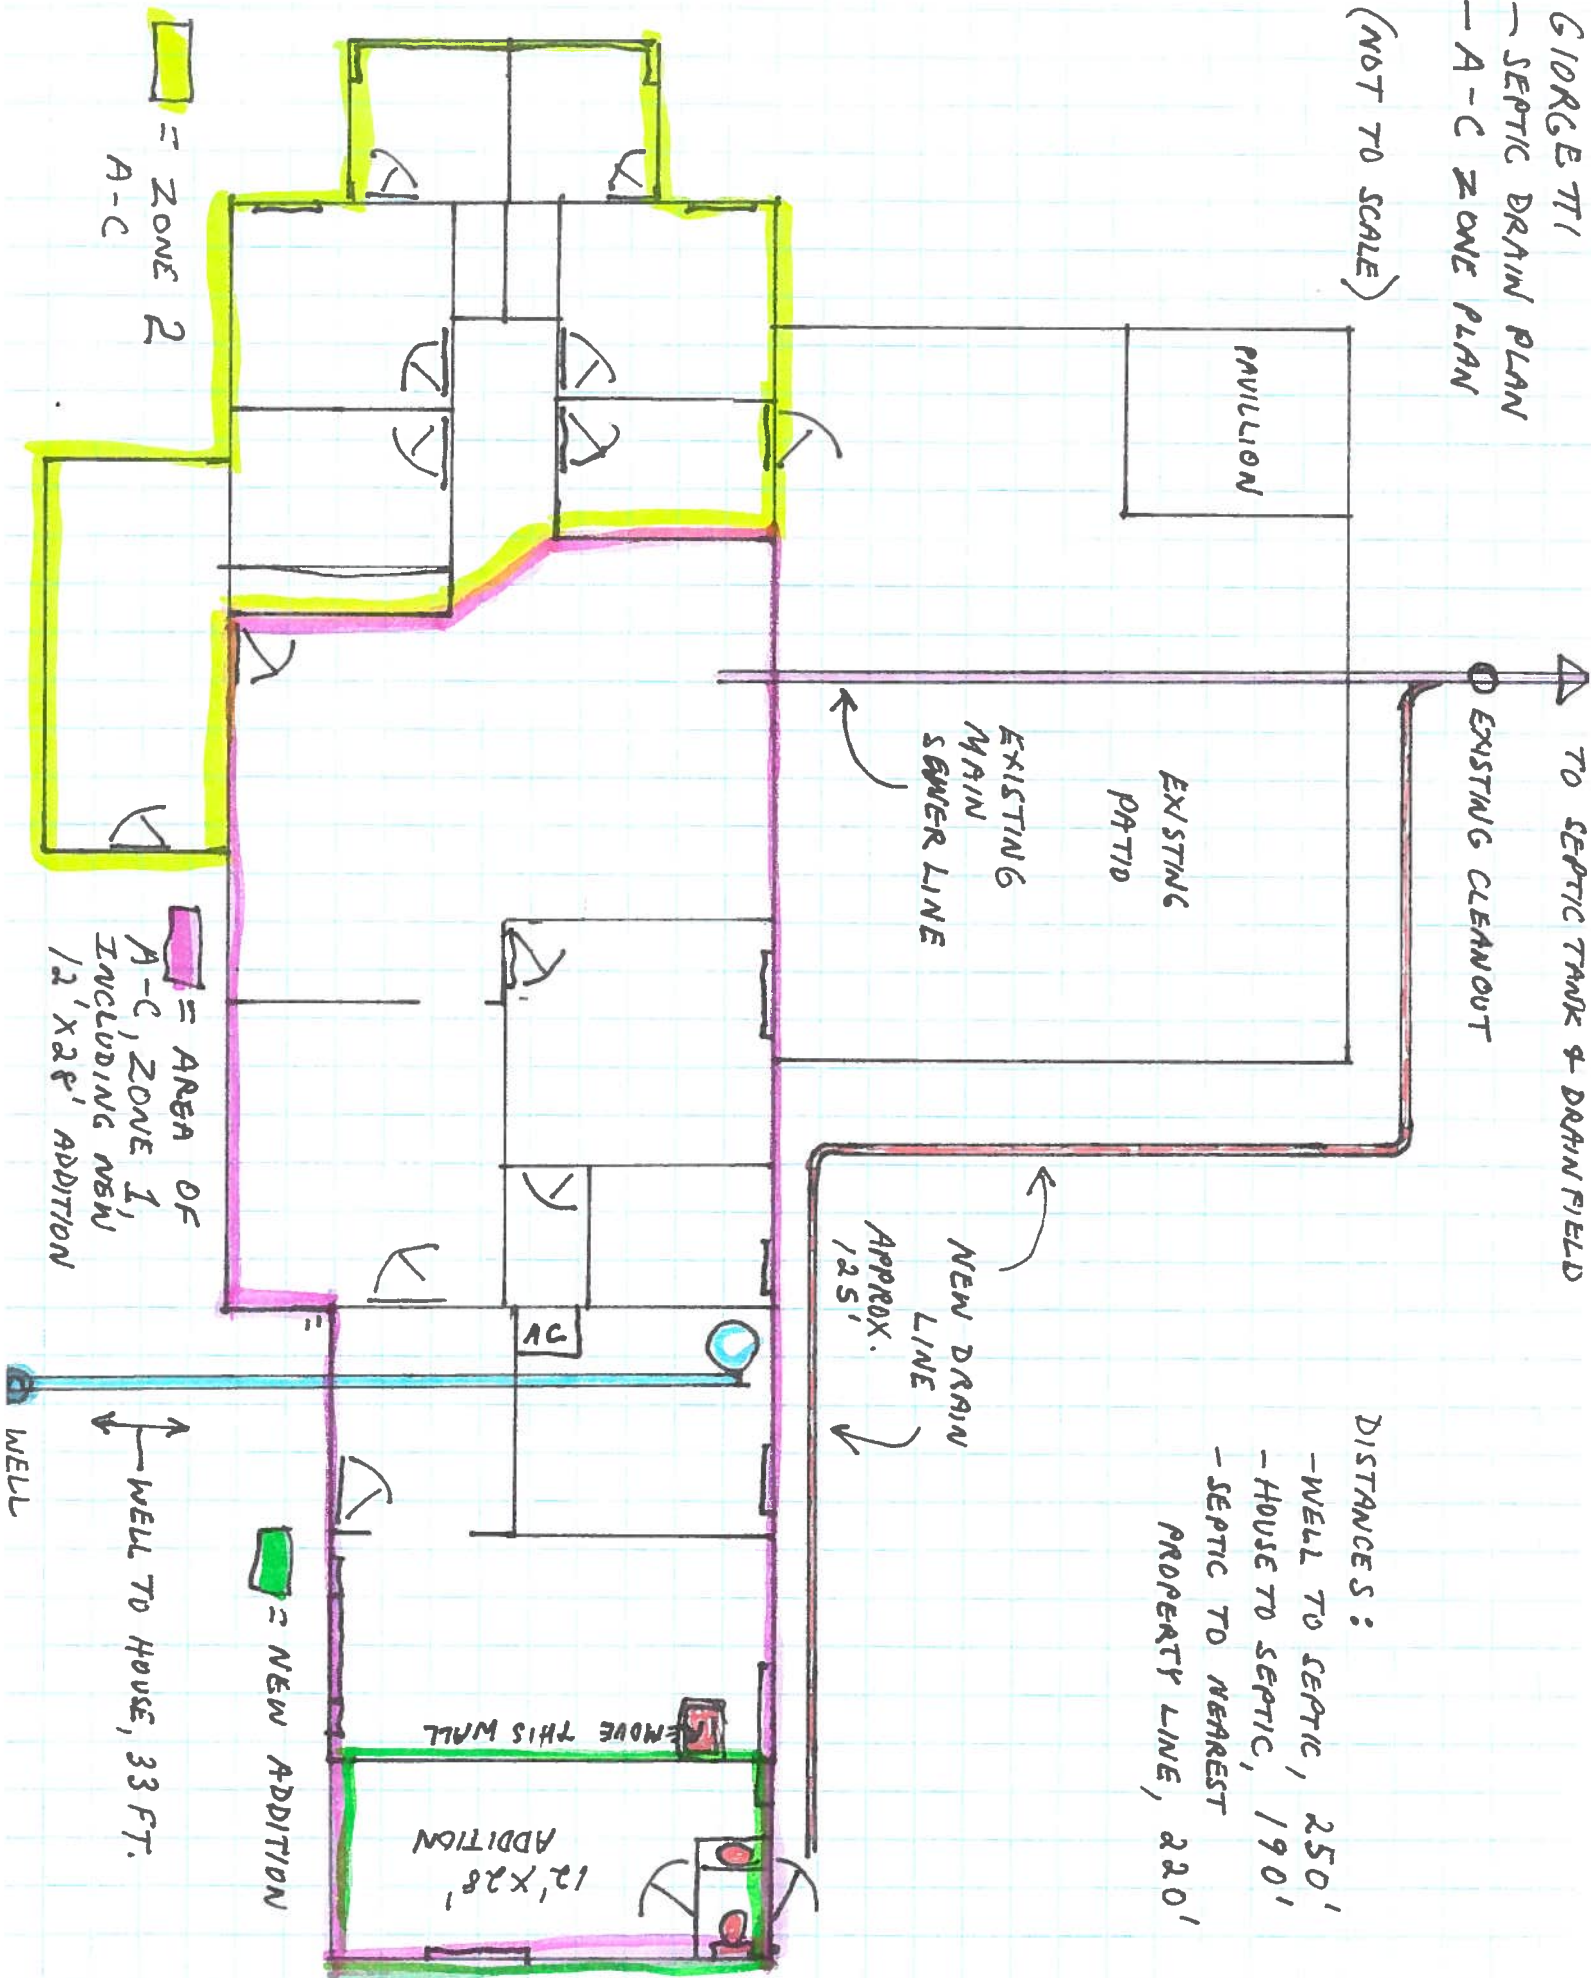 GIORGETTI
- SEPTIC DRAIN PLAN
- A-C ZONE PLAN
(NOT TO SCALE)
TO SEPTIC TANK & DRAINFIELD
EXISTING CLEANOUT
PAVILLION
EXISTING
PATIO
EXISTING
MAIN
SEWER LINE
NEW DRAIN
LINE
APPROX.
125'
DISTANCES:
- WELL TO SEPTIC, 250'
- HOUSE TO SEPTIC, 190'
- SEPTIC TO NEAREST
PROPERTY LINE, 220'
= ZONE 2
A-C
= AREA OF
A-C, ZONE 1,
INCLUDING NEW
12' X 28' ADDITION
AC
WELL
WELL TO HOUSE, 33 FT.
= NEW ADDITION
REMOVE THIS WALL
12' X 28'
ADDITION